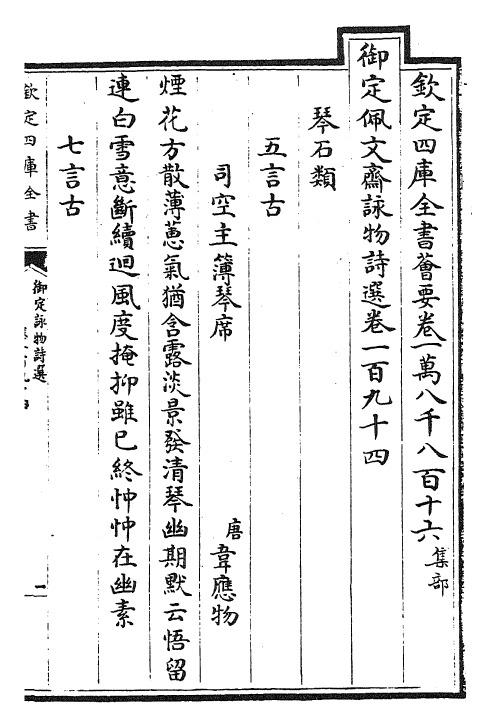 欽定四庫全書薈要卷一萬八千八百十六集部
御定佩文齋詠物詩選卷一百九十四
琴石類
五言古
司空主簿琴席 唐韋應物
煙花方散薄蕙氣猶含露淡景發清琴幽期默云悟留
連白雪意斷續迴風度掩抑雖已終忡忡在幽素
七言古
欽定四庫全書
御定詠物詩選
一